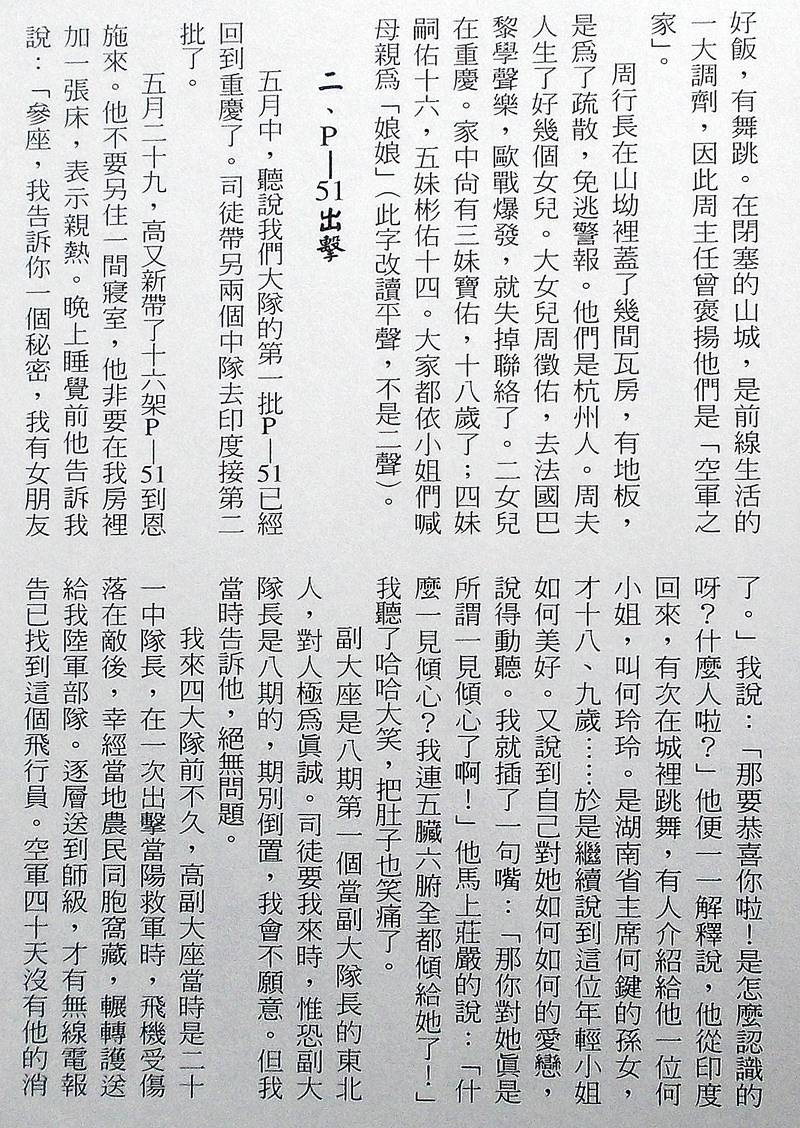 好飯，有舞跳。在閉塞的山城，是前線生活的
一大調劑，因此周主任曾褒揚他們是「空軍之
家」。
周行長在山坳裡蓋了幾間瓦房，有地板，
是爲了疏散，免逃警報。他們是杭州人。周夫
人生了好幾個女兒。大女兒周徵佑，去法國巴
黎學聲樂，歐戰爆發，就失掉聯絡了。二女兒
在重慶。家中尙有三妹寶佑，十八歲了；四妹
嗣佑十六，五妹彬佑十四。大家都依小姐們喊
母親爲「娘娘」（此字改讀平聲，不是二聲）。
二、P—51出擊
五月中，聽說我們大隊的第一批P—51已經
回到重慶了。司徒帶另兩個中隊去印度接第二
批了。
五月二十九，高又新帶了十六架P—51到恩
施來。他不要另住一間寢室，他非要在我房裡
加一張床，表示親熱。晚上睡覺前他告訴我
說：「參座，我告訴你一個秘密，我有女朋友
了。」我說：「那要恭喜你啦！是怎麼認識的
呀？什麼人啦？」他便一一解釋說，他從印度
回來，有次在城裡跳舞，有人介紹給他一位何
小姐，叫何玲玲。是湖南省主席何鍵的孫女，
才十八、九歲……於是繼續說到這位年輕小姐
如何美好。又說到自己對她如何如何的愛戀，
說得動聽。我就插了一句嘴：「那你對她眞是
所謂一見傾心了啊！」他馬上莊嚴的說：「什
麼一見傾心？我連五臟六腑全都傾給她了！」
我聽了哈哈大笑，把肚子也笑痛了。
副大座是八期第一個當副大隊長的東北
人，對人極爲眞誠。司徒要我來時，惟恐副大
隊長是八期的，期別倒置，我會不願意。但我
當時告訴他，絕無問題。
我來四大隊前不久，高副大座當時是二十
一中隊長，在一次出擊當陽救軍時，飛機受傷
落在敵後，幸經當地農民同胞窩藏，輾轉護送
給我陸軍部隊。逐層送到師級，才有無線電報
告已找到這個飛行員。空軍四十天沒有他的消